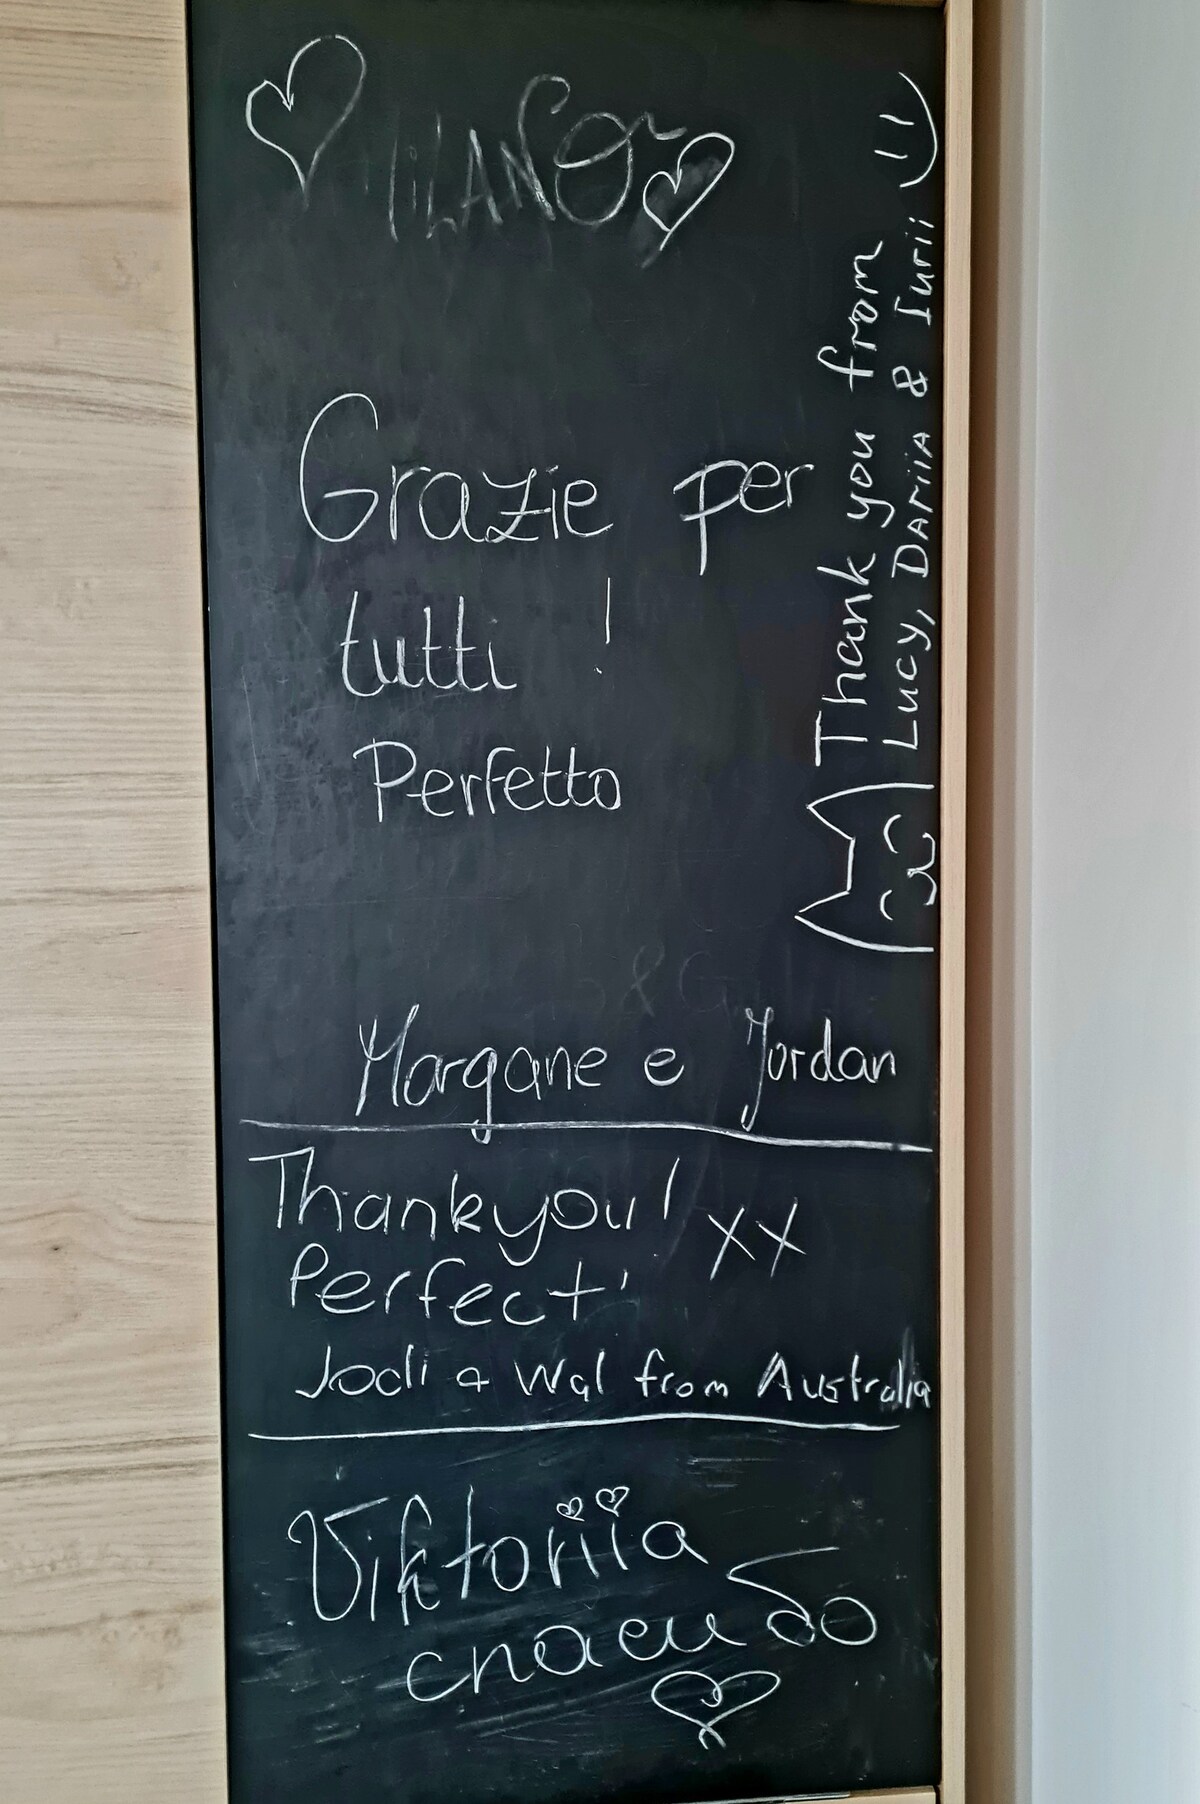 MILANO
Grazie per
tutti !
Perfetto
Morgane e Jordan
Thank you from
Lucy, DARiiA & Iurii :)
Thankyou! XX
Perfect!
Jodi & Wal from Australia
Viktoriia
спасибо